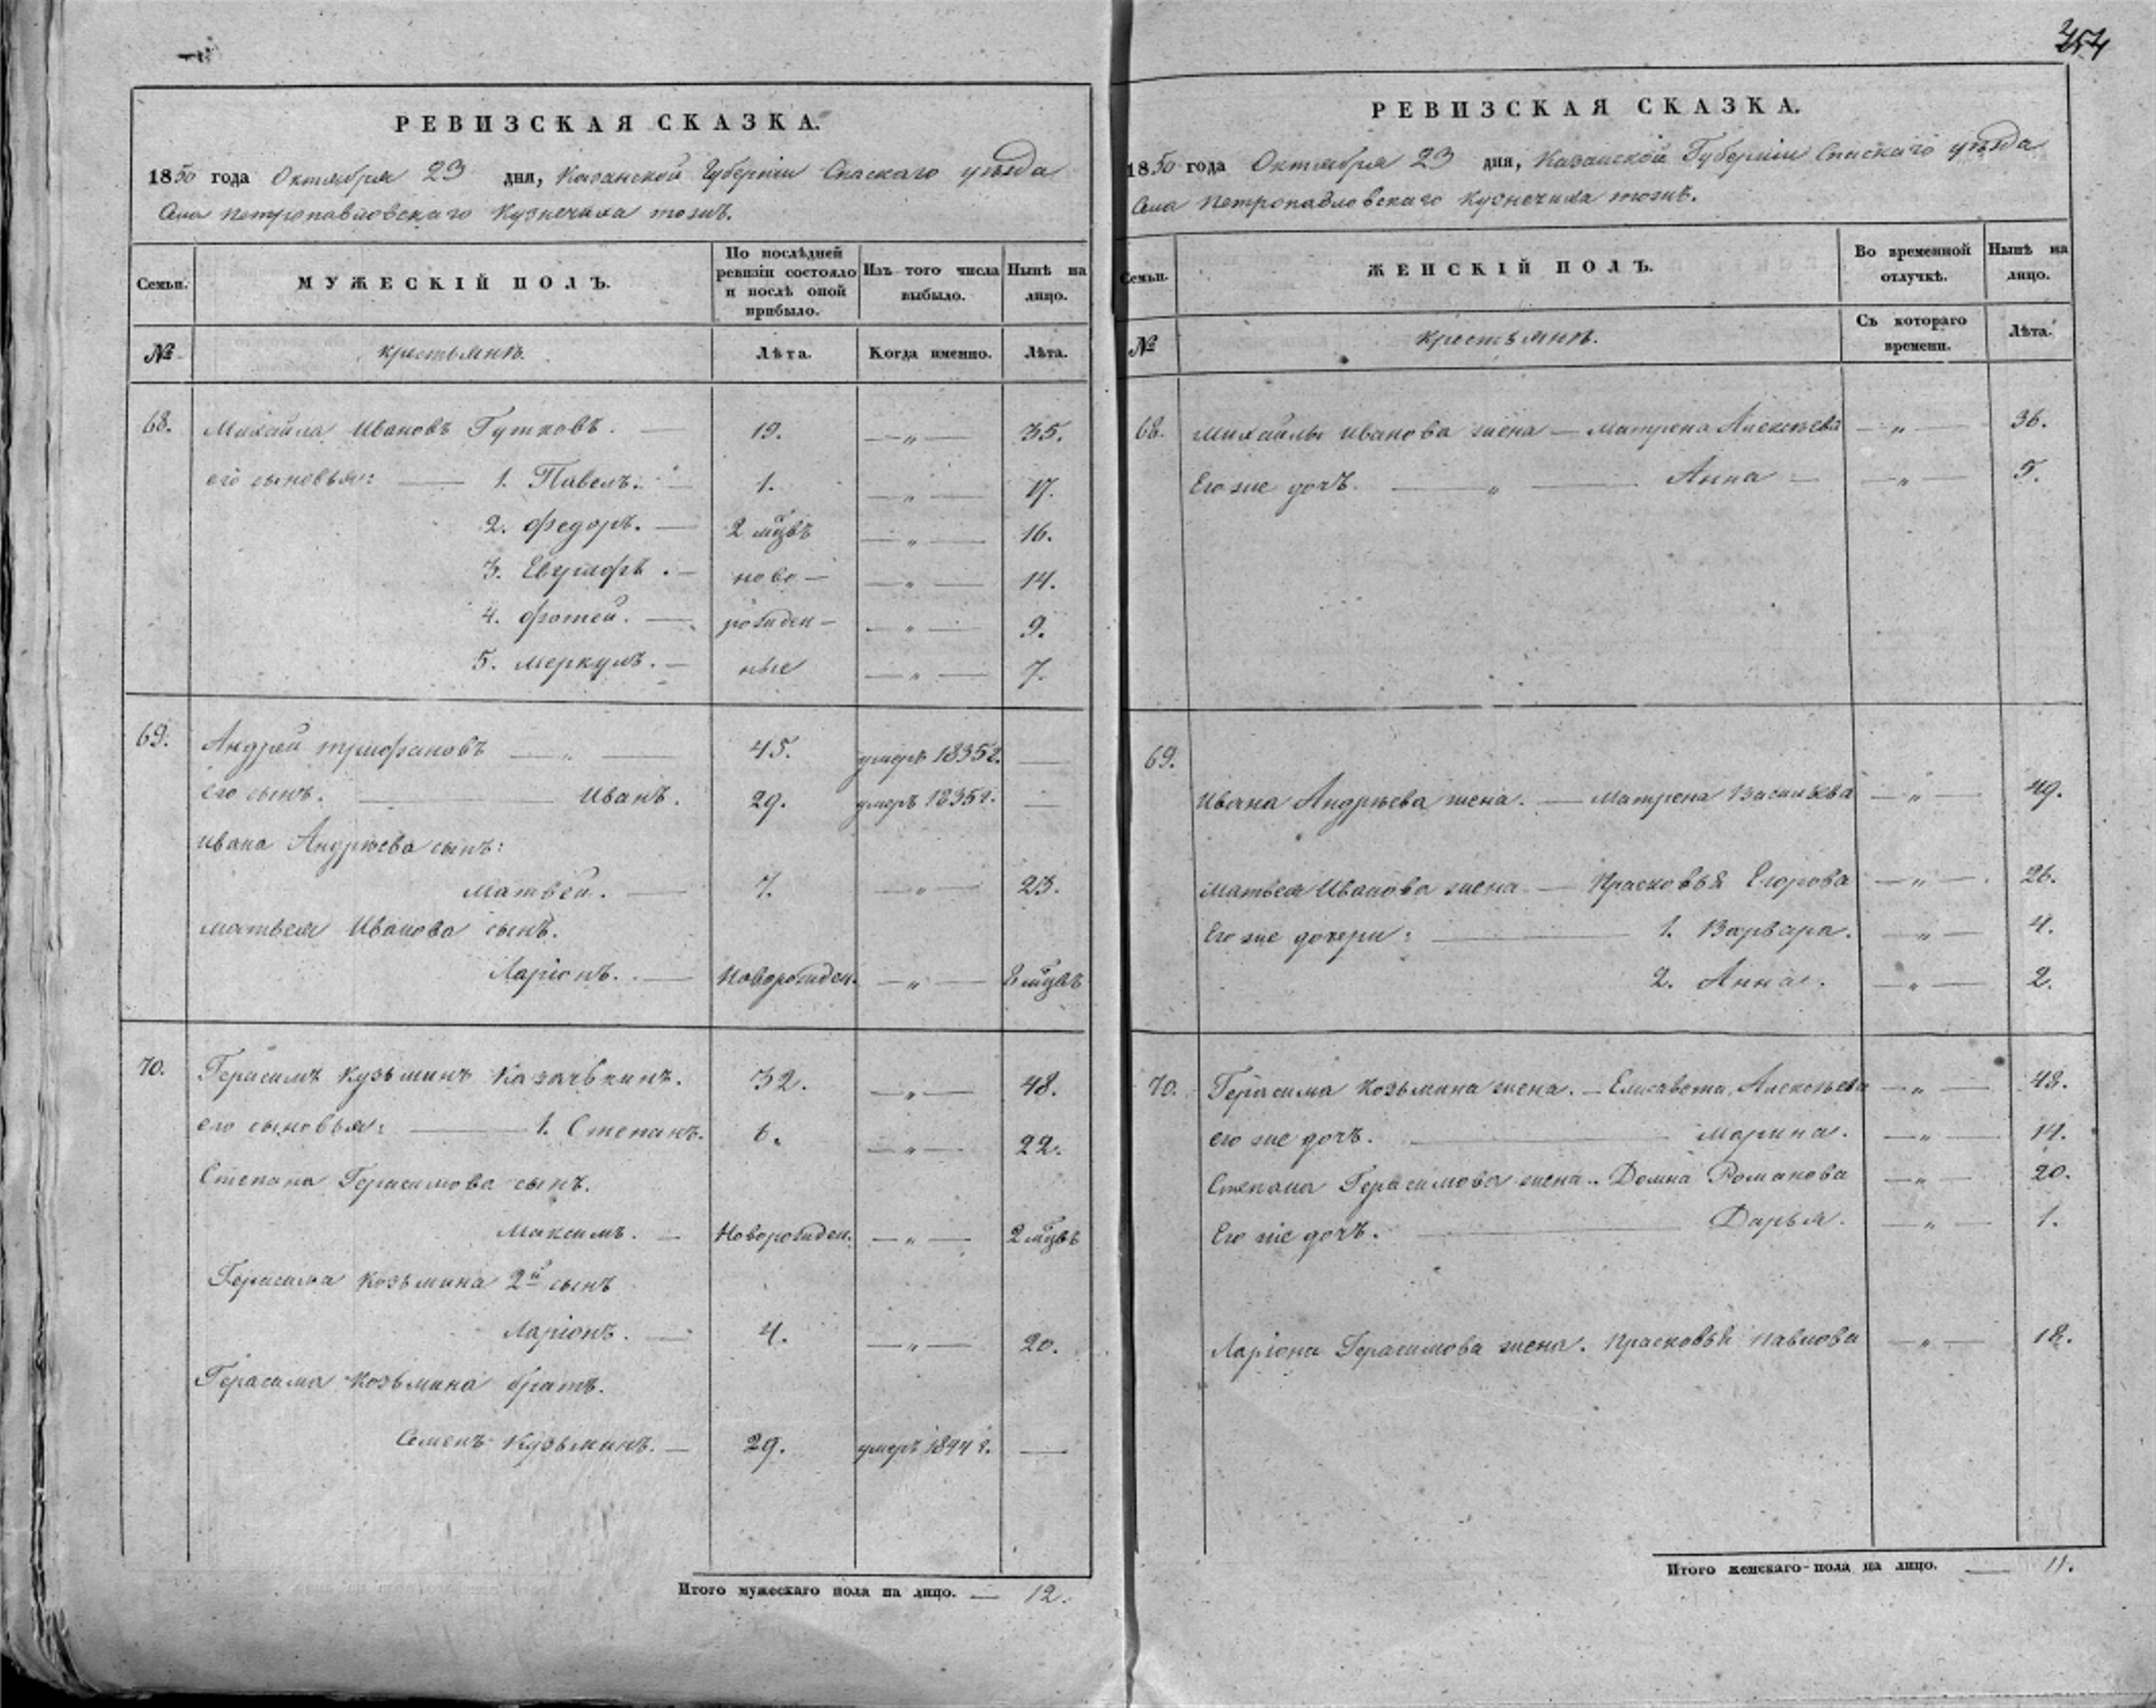 254
РЕВИЗСКАЯ СКАЗКА.
1850 года Октября 23 дня, Казанской Губерніи Спаскаго уѣзда
Села Петропавловскаго Кузнечиха тожъ.
Семьи. МУЖЕСКІЙ ПОЛЪ. По послѣдней ревизіи состояло и послѣ оной прибыло. Изъ того числа выбыло. Нынѣ на лицо.
№ крестьянѣ. Лѣта. Когда именно. Лѣта.
68. Михайла Ивановъ Гутковъ. — 19. — „ — 35.
его сыновья: — 1. Павелъ. — 1. — „ — 17.
2. Федоръ. — 2 мцвъ — „ — 16.
3. — ново — — „ — 14.
4. Фотей. — рожден — — „ — 9.
5. Меркулъ. — ные — „ — 7.
69. Андрей Трифановъ — „ — 45. умеръ 1835 г. —
его сынъ. — Иванъ. 29. умеръ 1835 г. —
Ивана Андрѣева сынъ:
Матвей. — 7. — „ — 23.
Матвея Иванова сынъ.
Ларіонъ. — Новорожден. — „ — 8 мцвъ
70. Герасимъ Кузьминъ Казачькинъ. 32. — „ — 48.
его сыновья: — 1. Степанъ. 6. — „ — 22.
Степана Герасимова сынъ.
Максимъ. — Новорожден. — „ — 2 мцвъ
Герасима Козьмина 2й сынъ
Ларіонъ. — 4. — „ — 20.
Герасима Козьмина братъ.
Семенъ Кузьминъ. — 29. умеръ 1844 г. —
Итого мужескаго пола на лицо. — 12.
РЕВИЗСКАЯ СКАЗКА.
1850 года Октября 23 дня, Казанской Губерніи Спаскаго уѣзда
Села Петропавловскаго Кузнечиха тожъ.
Семьи. ЖЕНСКІЙ ПОЛЪ. Во временной отлучкѣ. Нынѣ на лицо.
№ крестьянѣ. Съ котораго времени. Лѣта.
68. Михайлы Иванова жена — Матрена Алексѣева — „ — 36.
Его же дочь. — „ — Анна — — „ — 5.
69.
Ивана Андрѣева жена. — Матрена Васильева — „ — 49.
Матвея Иванова жена — Прасковья Егорова — „ — 26.
Его же дочери: — 1. Варвара. — „ — 4.
2. Анна. — „ — 2.
70. Герасима Козьмина жена. — Елисавета Алексѣева — „ — 48.
его же дочь. — Марина. — „ — 14.
Степана Герасимова жена. — Домна Романова — „ — 20.
Его же дочь. — Дарья. — „ — 1.
Ларіона Герасимова жена. Прасковья Павлова — „ — 18.
Итого женскаго-пола на лицо. — 11.